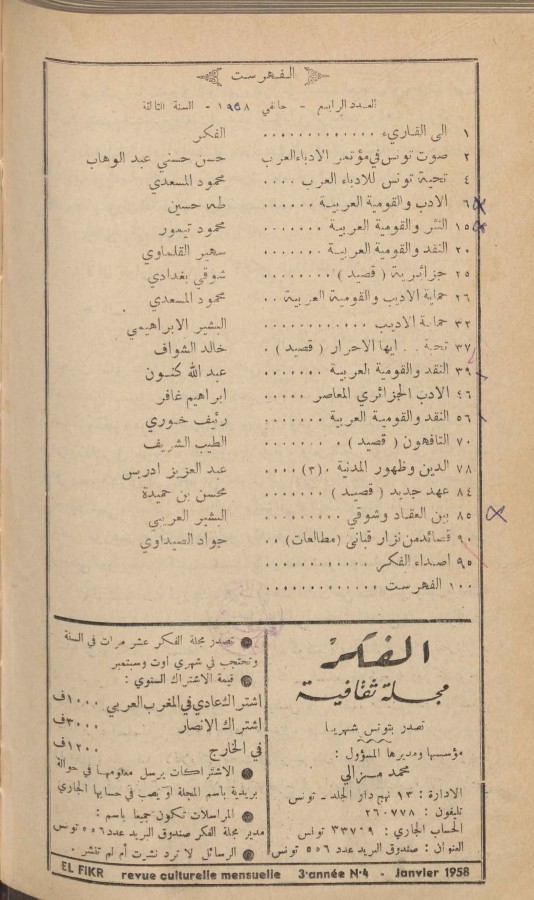 الفهرست
العدد الرابع - جانفي ١٩٥٨ - السنة الثالثة
١ الى القارىء . . . . . . . . . . . . . الفكر
٢ صوت تونس في مؤتمر الادباء العرب حسن حسني عبد الوهاب
٤ تحية تونس للادباء العرب . . . . محمود المسعدي
٦ الادب والقومية العربية . . . . . . طه حسين
١٥ النثر والقومية العربية . . . . . . . محمود تيمور
٢٠ النقد والقومية العربية . . . . . . . سهير القلماوي
٢٥ جزائرية ( قصيد ) . . . . . . . . شوقي بغدادي
٢٦ حماية الاديب والقومية العربية . . محمود المسعدي
٣٢ حماية الاديب . . . . . . . . . . . . البشير الابراهيمي
٣٧ تحية . . ايها الاحرار ( قصيد ) . خالد الشواف
٣٩ النقد والقومية العربية . . . . . . . عبد الله كنون
٤٦ الادب الجزائري المعاصر . . . . . ابراهيم غافر
٥٦ النقد والقومية العربية . . . . . . . رئيف خوري
٧٠ التافهون ( قصيد ) . . . . . . . . الطيب الشريف
٧٨ الدين وظهور المدنية . (٣) . . . . عبد العزيز ادريس
٨٤ عهد جديد ( قصيد ) . . . . . . . محسن بن حميدة
٨٥ بين العقاد وشوقي . . . . . . . . . البشير العريبي
٩٠ قصائد من نزار قباني (مطالعات) . . جواد الصيداوي
٩٥ اصداء الفكر . . . . . . . . . . . .
١٠٠ الفهرست . . . . . . . . . . . .
الفكر
مجلة ثقافية
تصدر بتونس شهريا
مؤسسها ومديرها المسؤول :
محمد مزالي
الادارة : ١٣ نهج دار الجلد - تونس
تليفون : ٢٦٠٧٧٨
الحساب الجاري : ٣٣٧٠٩ تونس
العنوان : صندوق البريد عدد ٥٥٦ تونس
● تصدر مجلة الفكر عشر مرات في السنة
وتحتجب في شهري اوت وسبتمبر
● قيمة الاشتراك السنوي :
اشتراك عادي في المغرب العربي ١٠٠٠ف
اشتراك الانصار ٣٠٠٠ف
في الخارج ١٢٠٠ف
● الاشتراكات يرسل معلومها في حوالة
بريدية باسم المجلة او يصب في حسابها الجاري
● المراسلات تكون جميعا باسم :
مدير مجلة الفكر صندوق البريد عدد ٥٥٦ تونس
● الرسائل لا ترد نشرت أم لم تنشر .
EL FIKR revue culturelle mensuelle 3e année N° 4 - Janvier 1958